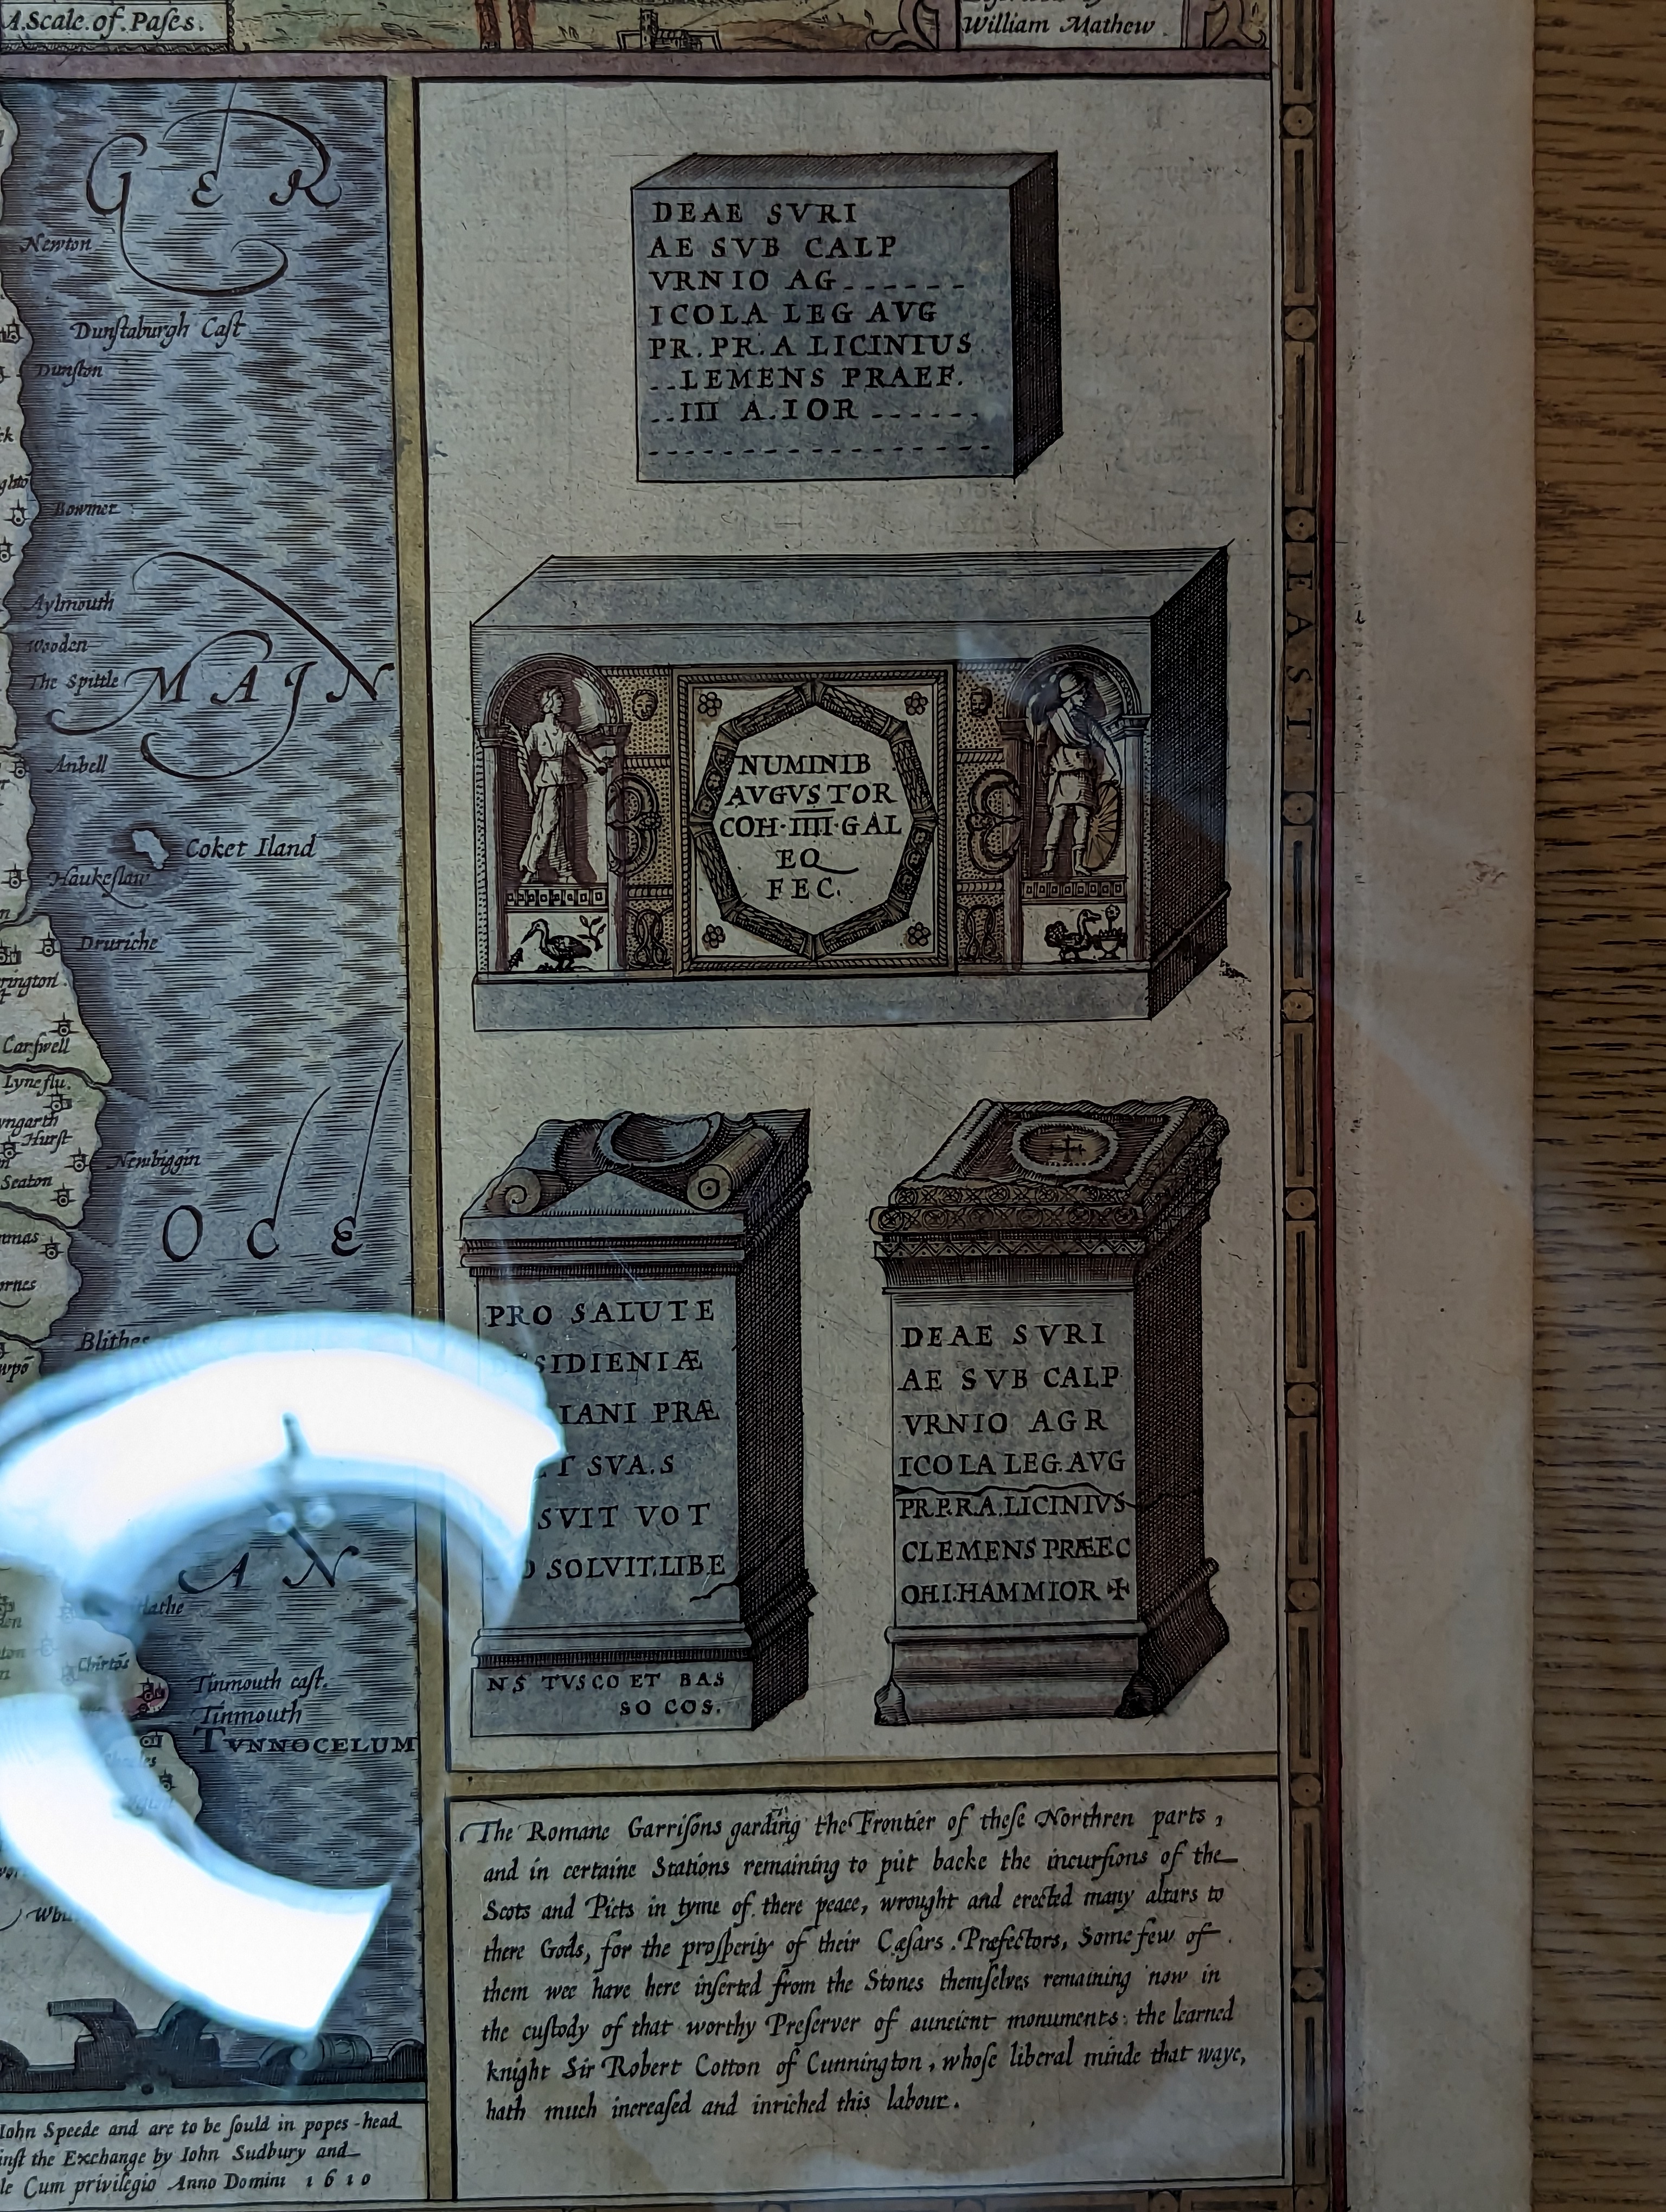 A.Scale.of.Paſes.
William Mathew
GER
Newton
Dunſtaburgh Caſt
Dunſton
Bowmer
Aylmouth
Wooden
The Spittle
MAIN
Anbell
Coket Iland
Haukeſlaw
Druriche
Carſwell
Lyne flu.
Hurſt
Newbiggin
Seaton
OCE
AN
Chirtōs
Tinmouth caſt.
Tinmouth
TVNNOCELUM
Iohn Speede and are to be ſould in popes-head
the Exchange by Iohn Sudbury and
Cum privilegio Anno Domini 1610
DEAE SVRI
AE SVB CALP
VRNIO AG------
ICOLA LEG AVG
PR. PR. A LICINIUS
..LEMENS PRAEF.
..III A.IOR ------
NUMINIB
AVGVSTOR
COH·IIII·GAL
EQ
FEC.
PRO SALUTE
SIDIENIÆ
IANI PRÆ
T SVA.S
SVIT VOT
SOLVIT.LIBE
NS TVSCO ET BAS
SO COS.
DEAE SVRI
AE SVB CALP
VRNIO AGR
ICOLA LEG.AVG
PR.P.R.A.LICINIVS
CLEMENS PRÆEC
OH.I.HAMMIOR ✠
The Romane Garriſons garding the Frontier of theſe Northren parts,
and in certaine Stations remaining to put backe the incurſions of the
Scots and Picts in tyme of there peace, wrought and erected many altars to
there Gods, for the proſperity of their Cæſars. Præfectors, Some few of
them wee have here inſerted from the Stones themſelves remaining now in
the cuſtody of that worthy Preſerver of auncient monuments: the learned
knight Sir Robert Cotton of Cunnington, whoſe liberal minde that waye,
hath much increaſed and inriched this labour.
EAST